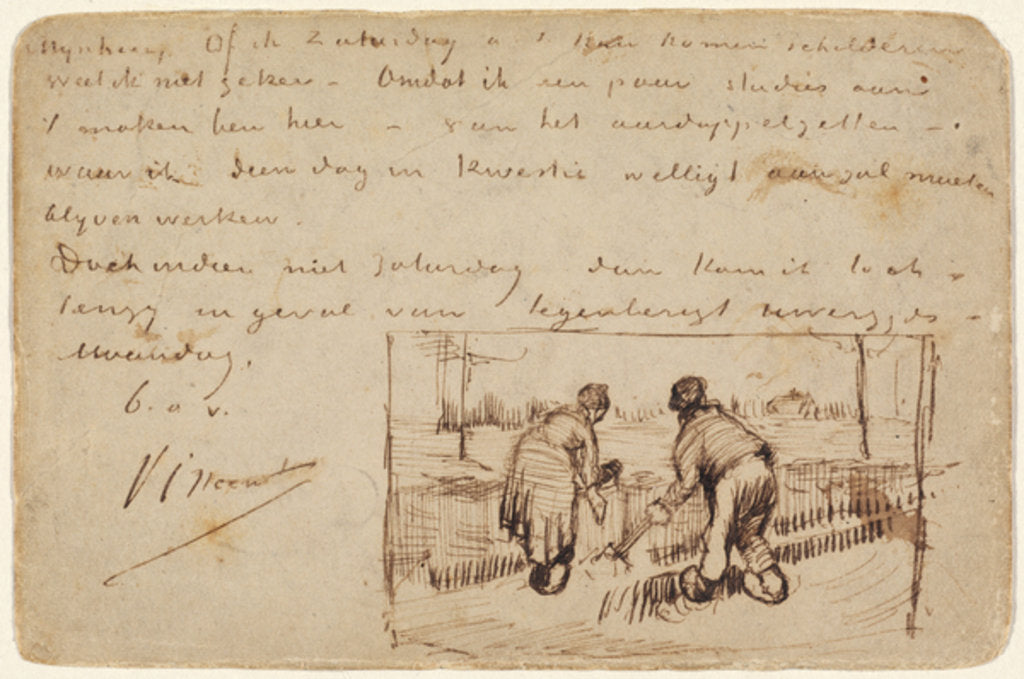 Mynheer, Of ik Zaturdag a. s. kan komen schilderen
weet ik niet zeker – Omdat ik een paar studies aan
't maken ben hier – van het aardappelzetten –.
waar ik dien dag in kwestie welligt aan zal moeten
blyven werken.
Doch indien niet Zaturdag dan kom ik toch –
tenzy in geval van tegenberigt uwerzyds –
Maandag.
b. a. v.
Vincent